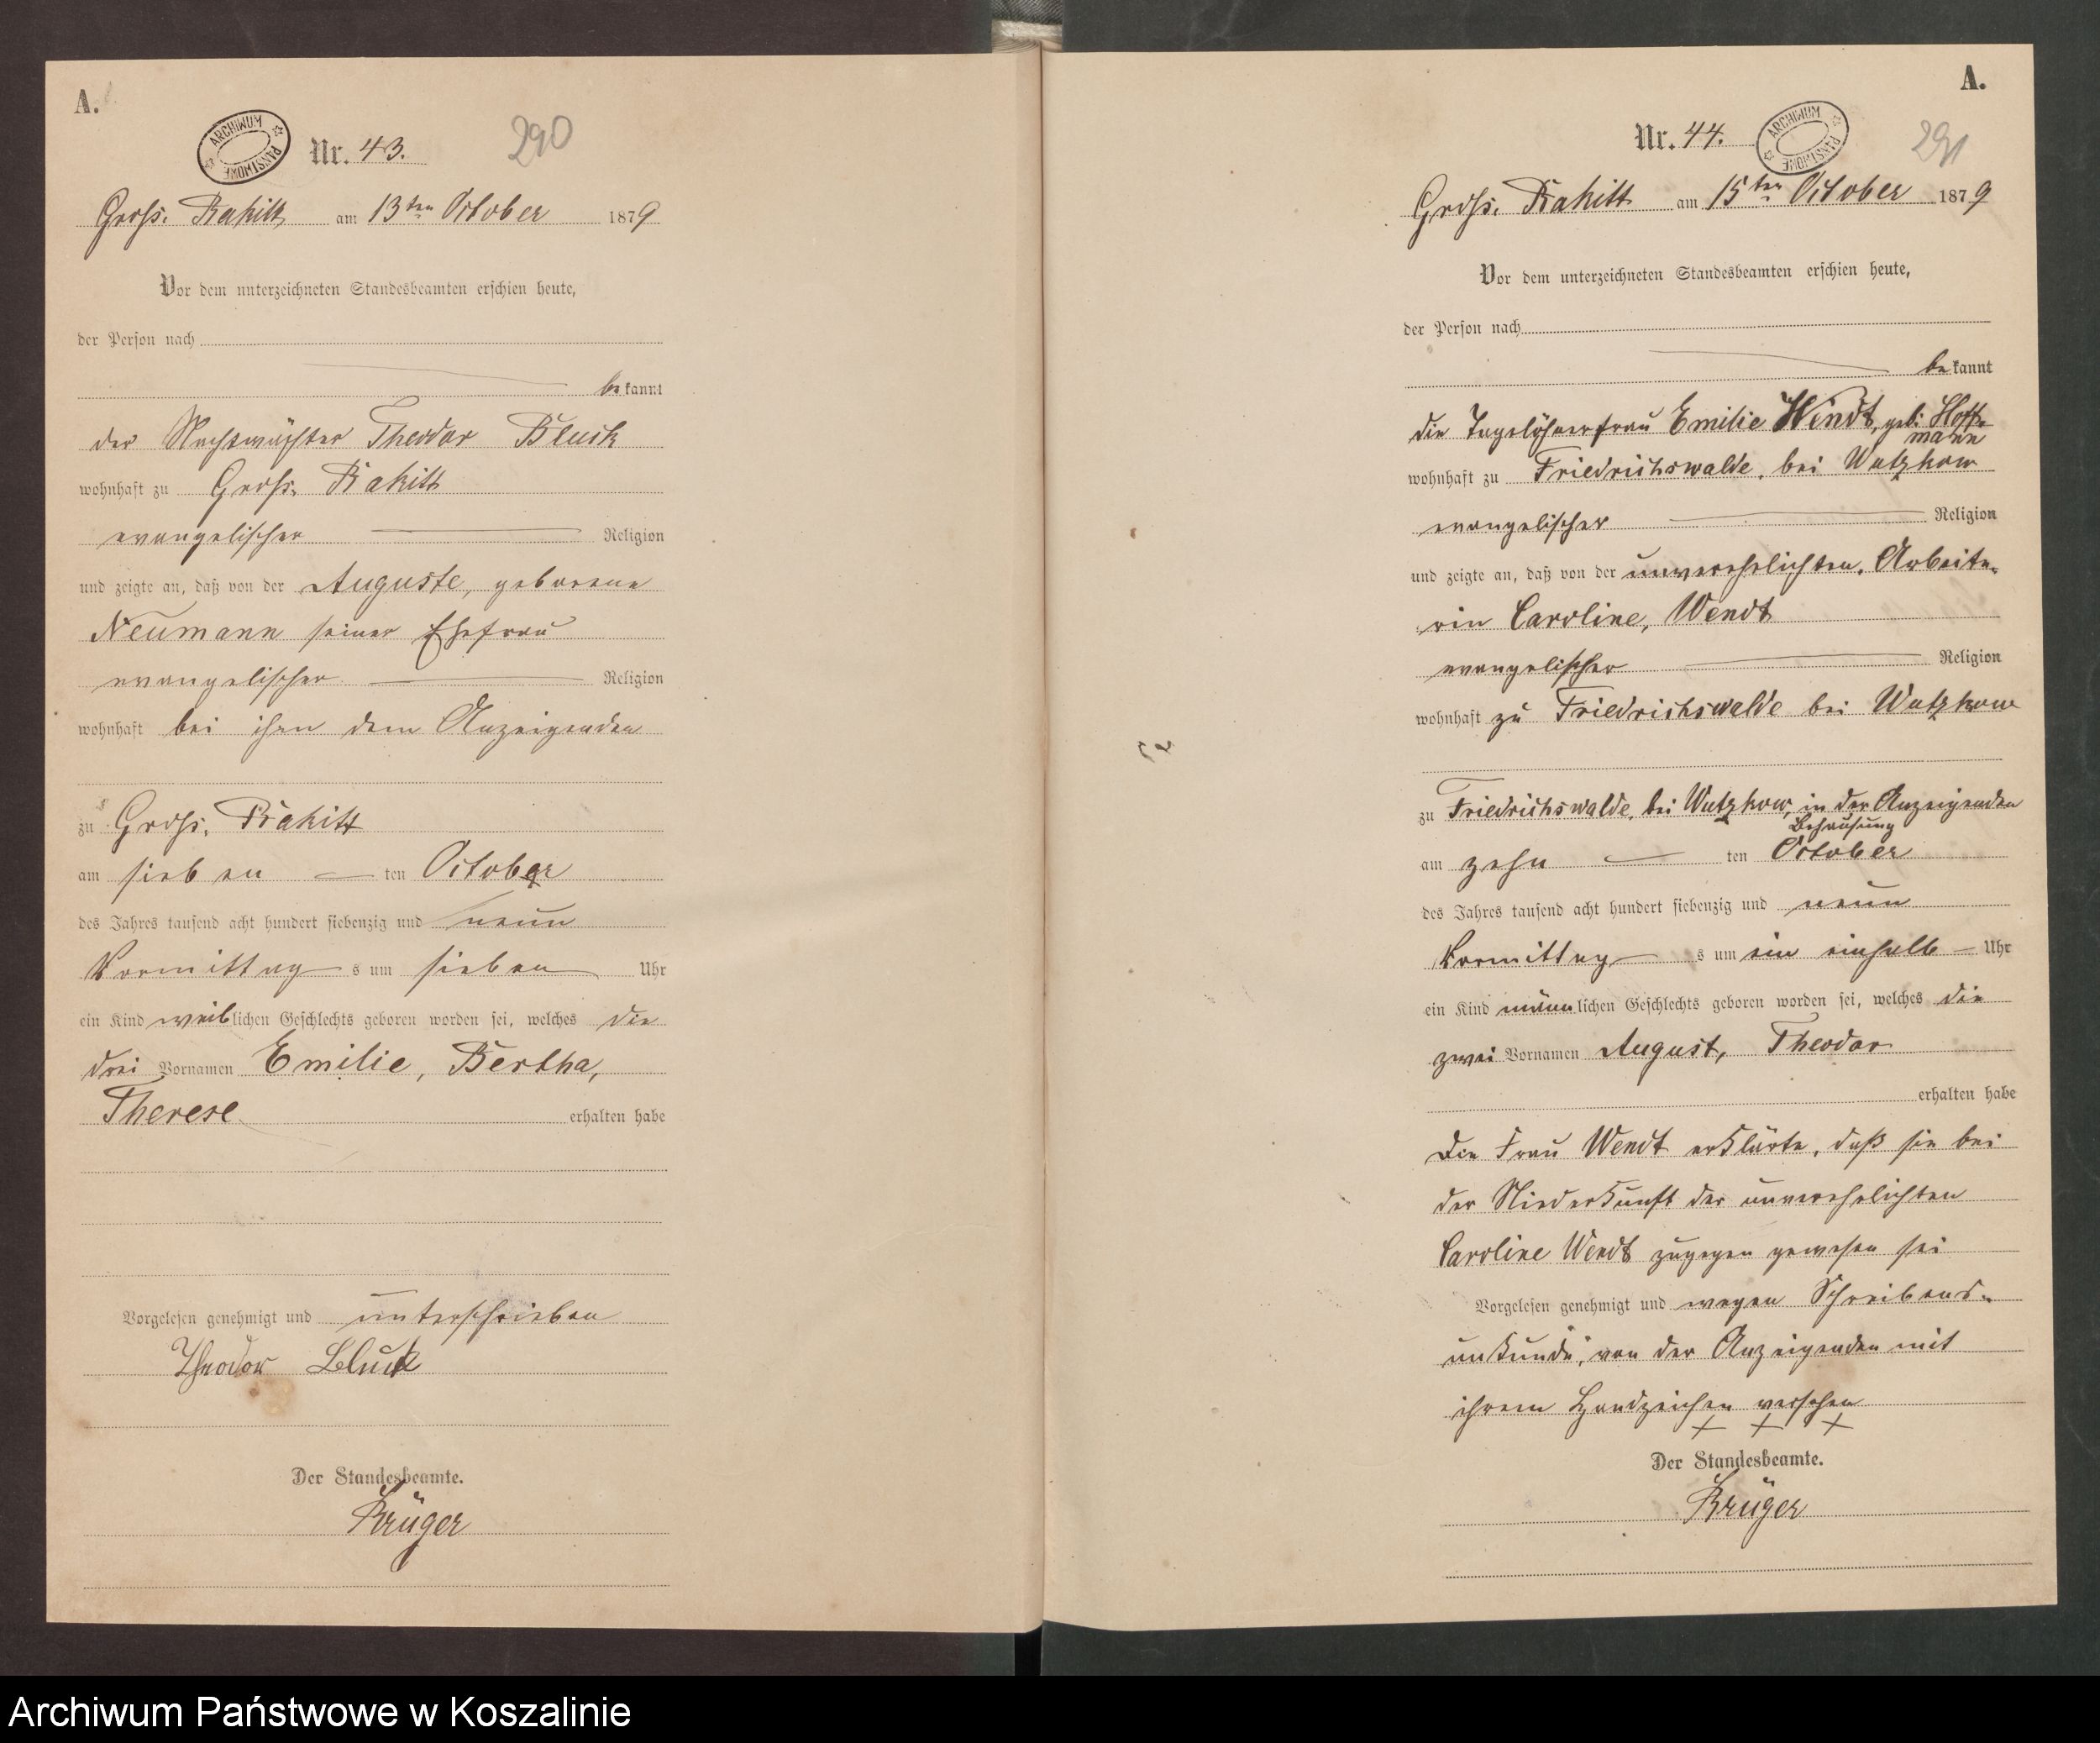 A.
ARCHIWUM PAŃSTWOWE
Nr. 43.
290
Gross. Rakitt am 13ten October 1879
Vor dem unterzeichneten Standesbeamten erschien heute,
der Person nach
bekannt
der Nachtwächter Theodor Bluck
wohnhaft zu Gross. Rakitt
evangelischer Religion
und zeigte an, daß von der Auguste, geborene
Neumann seiner Ehefrau
evangelischer Religion
wohnhaft bei ihm dem Anzeigenden
zu Gross. Rakitt
am sieben ten October
des Jahres tausend acht hundert siebenzig und neun
Vormittag s um sieben Uhr
ein Kind weiblichen Geschlechts geboren worden sei, welches die
drei Vornamen Emilie, Bertha,
Therese erhalten habe
Vorgelesen genehmigt und unterschrieben
Theodor Bluck
Der Standesbeamte.
Krüger
A.
Nr. 44.
ARCHIWUM PAŃSTWOWE
291
Gross. Rakitt am 15ten October 1879
Vor dem unterzeichneten Standesbeamten erschien heute,
der Person nach
bekannt
die Tagelöhnerfrau Emilie Wendt, geb. Hoff-
mann
wohnhaft zu Friedrichswalde, bei Wutzkow
evangelischer Religion
und zeigte an, daß von der unverehelichten, Arbeite-
rin Caroline, Wendt
evangelischer Religion
wohnhaft zu Friedrichswalde bei Wutzkow
zu Friedrichswalde, bei Wutzkow, in der Anzeigenden
Behausung
am zehn ten October
des Jahres tausend acht hundert siebenzig und neun
Vormittag s um ein einhalb Uhr
ein Kind männlichen Geschlechts geboren worden sei, welches die
zwei Vornamen August, Theodor
erhalten habe
Die Frau Wendt erklärte, daß sie bei
der Niederkunft der unverehelichten
Caroline Wendt zugegen gewesen sei
Vorgelesen genehmigt und wegen Schreibens-
unkunde, von der Anzeigenden mit
ihrem Handzeichen versehen
+ + +
Der Standesbeamte.
Krüger
Archiwum Państwowe w Koszalinie